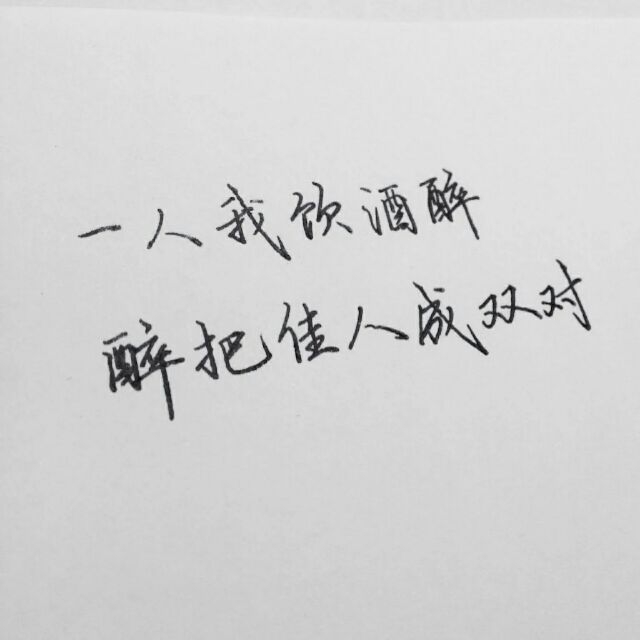 一人我饮酒醉
醉把佳人成双对